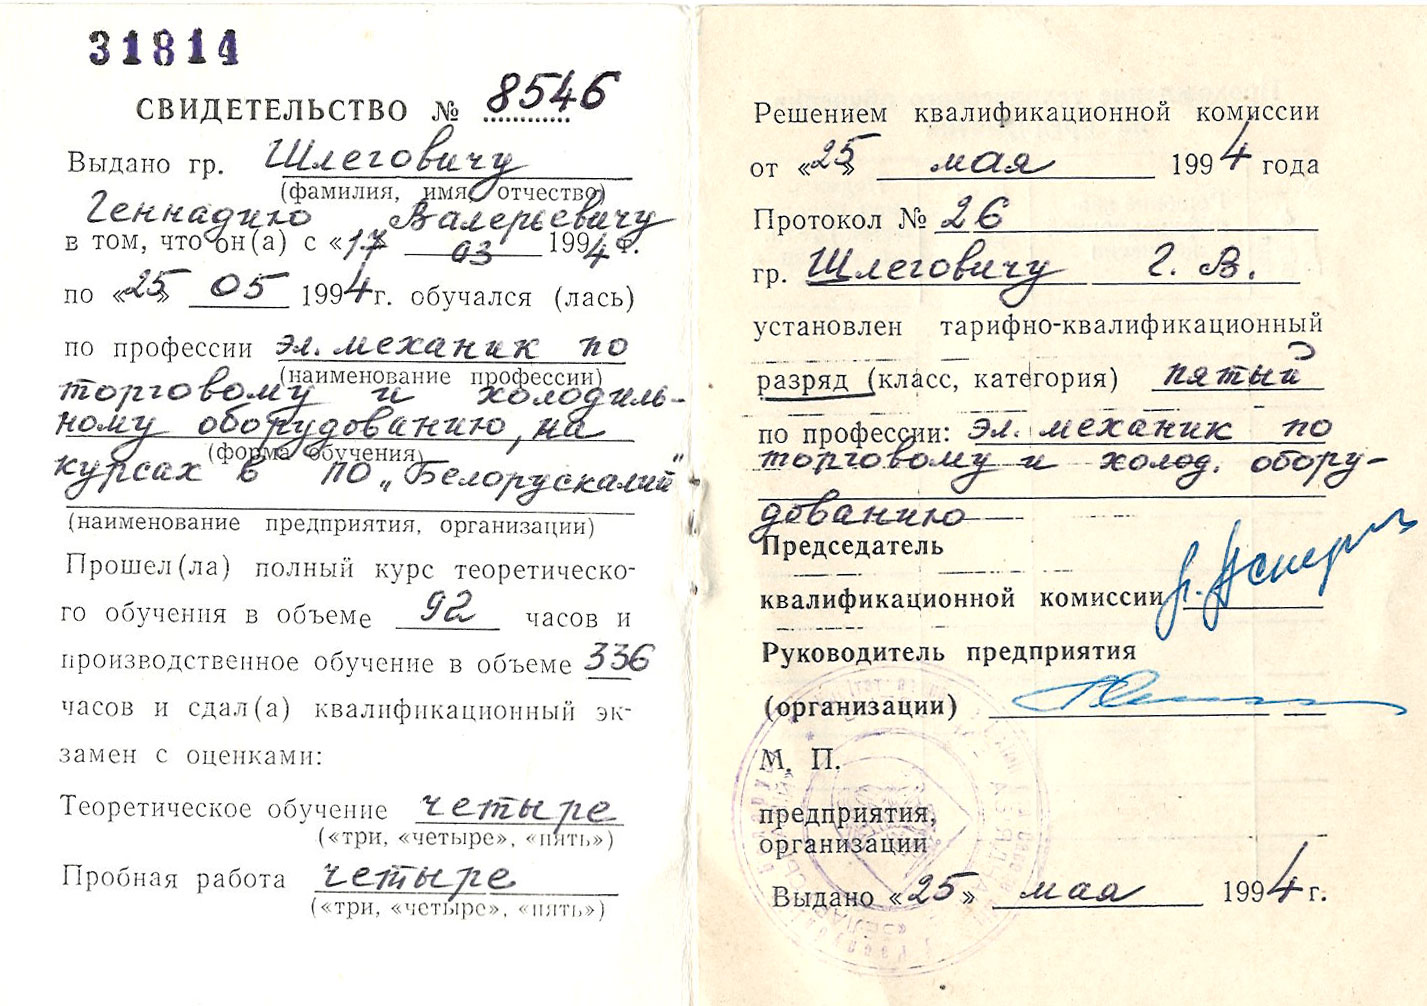 31814
СВИДЕТЕЛЬСТВО № 8546
Выдано гр. Шлеговичу
(фамилия, имя, отчество)
Геннадию Валерьевичу
в том, что он(а) с «17» 03 1994 г.
по «25» 05 1994 г. обучался (лась)
по профессии эл. механик по
(наименование профессии)
торговому и холодиль-
ному оборудованию, на
(форма обучения)
курсах в ПО „Белорускалий"
(наименование предприятия, организации)
Прошел(ла) полный курс теоретическо-
го обучения в объеме 92 часов и
производственное обучение в объеме 336
часов и сдал(а) квалификационный эк-
замен с оценками:
Теоретическое обучение четыре
(«три, «четыре», «пять»)
Пробная работа четыре
(«три, «четыре», «пять»)
Решением квалификационной комиссии
от «25» мая 1994 года
Протокол № 26
гр. Шлеговичу Г. В.
установлен тарифно-квалификационный
разряд (класс, категория) пятый
по профессии: эл. механик по
торговому и холод. обору-
дованию
Председатель
квалификационной комиссии
Руководитель предприятия
(организации)
М. П.
предприятия,
организации
Выдано «25» мая 1994 г.